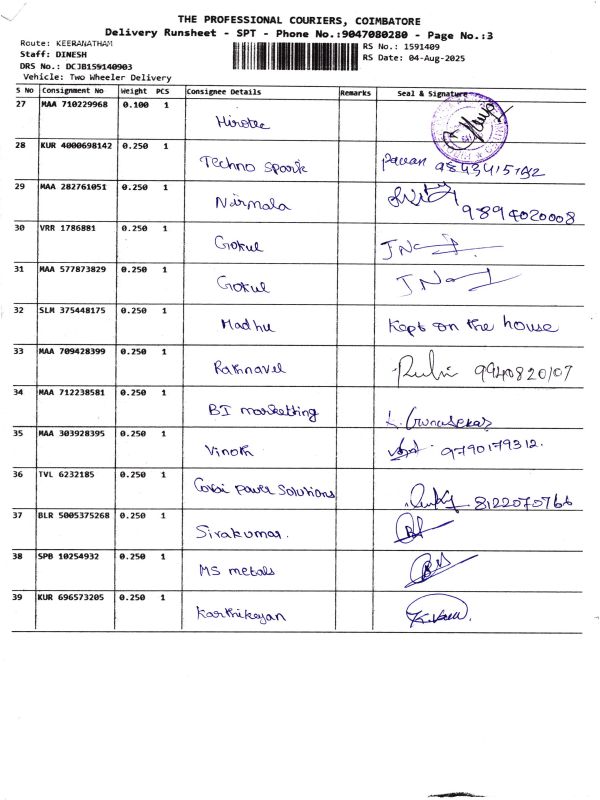 THE PROFESSIONAL COURIERS, COIMBATORE
Delivery Runsheet - SPT - Phone No.:9047080280 - Page No.:3
Route: KEERANATHAM
Staff: DINESH
DRS No.: DCJB159140903
Vehicle: Two Wheeler Delivery
RS No.: 1591409
RS Date: 04-Aug-2025
S No Consignment No Weight PCS Consignee Details Remarks Seal & Signature
27 MAA 710229968 0.100 1 Hirotec
28 KUR 4000698142 0.250 1 Techno spark Pavan
29 MAA 282761051 0.250 1 Nirmala 9894020008
30 VRR 1786881 0.250 1 Gokul
31 MAA 577873829 0.250 1 Gokul
32 SLM 375448175 0.250 1 Madhu Kept on the house
33 MAA 709428399 0.250 1 Rathnavel 9940820107
34 MAA 712238581 0.250 1 BI marketting K. Gunasekar
35 MAA 303928395 0.250 1 Vinoth 9790179312.
36 TVL 6232185 0.250 1 power Solutions 8122070766
37 BLR 5005375268 0.250 1 Sivakumar.
38 SPB 10254932 0.250 1 MS metals
39 KUR 696573205 0.250 1 Karthikeyan